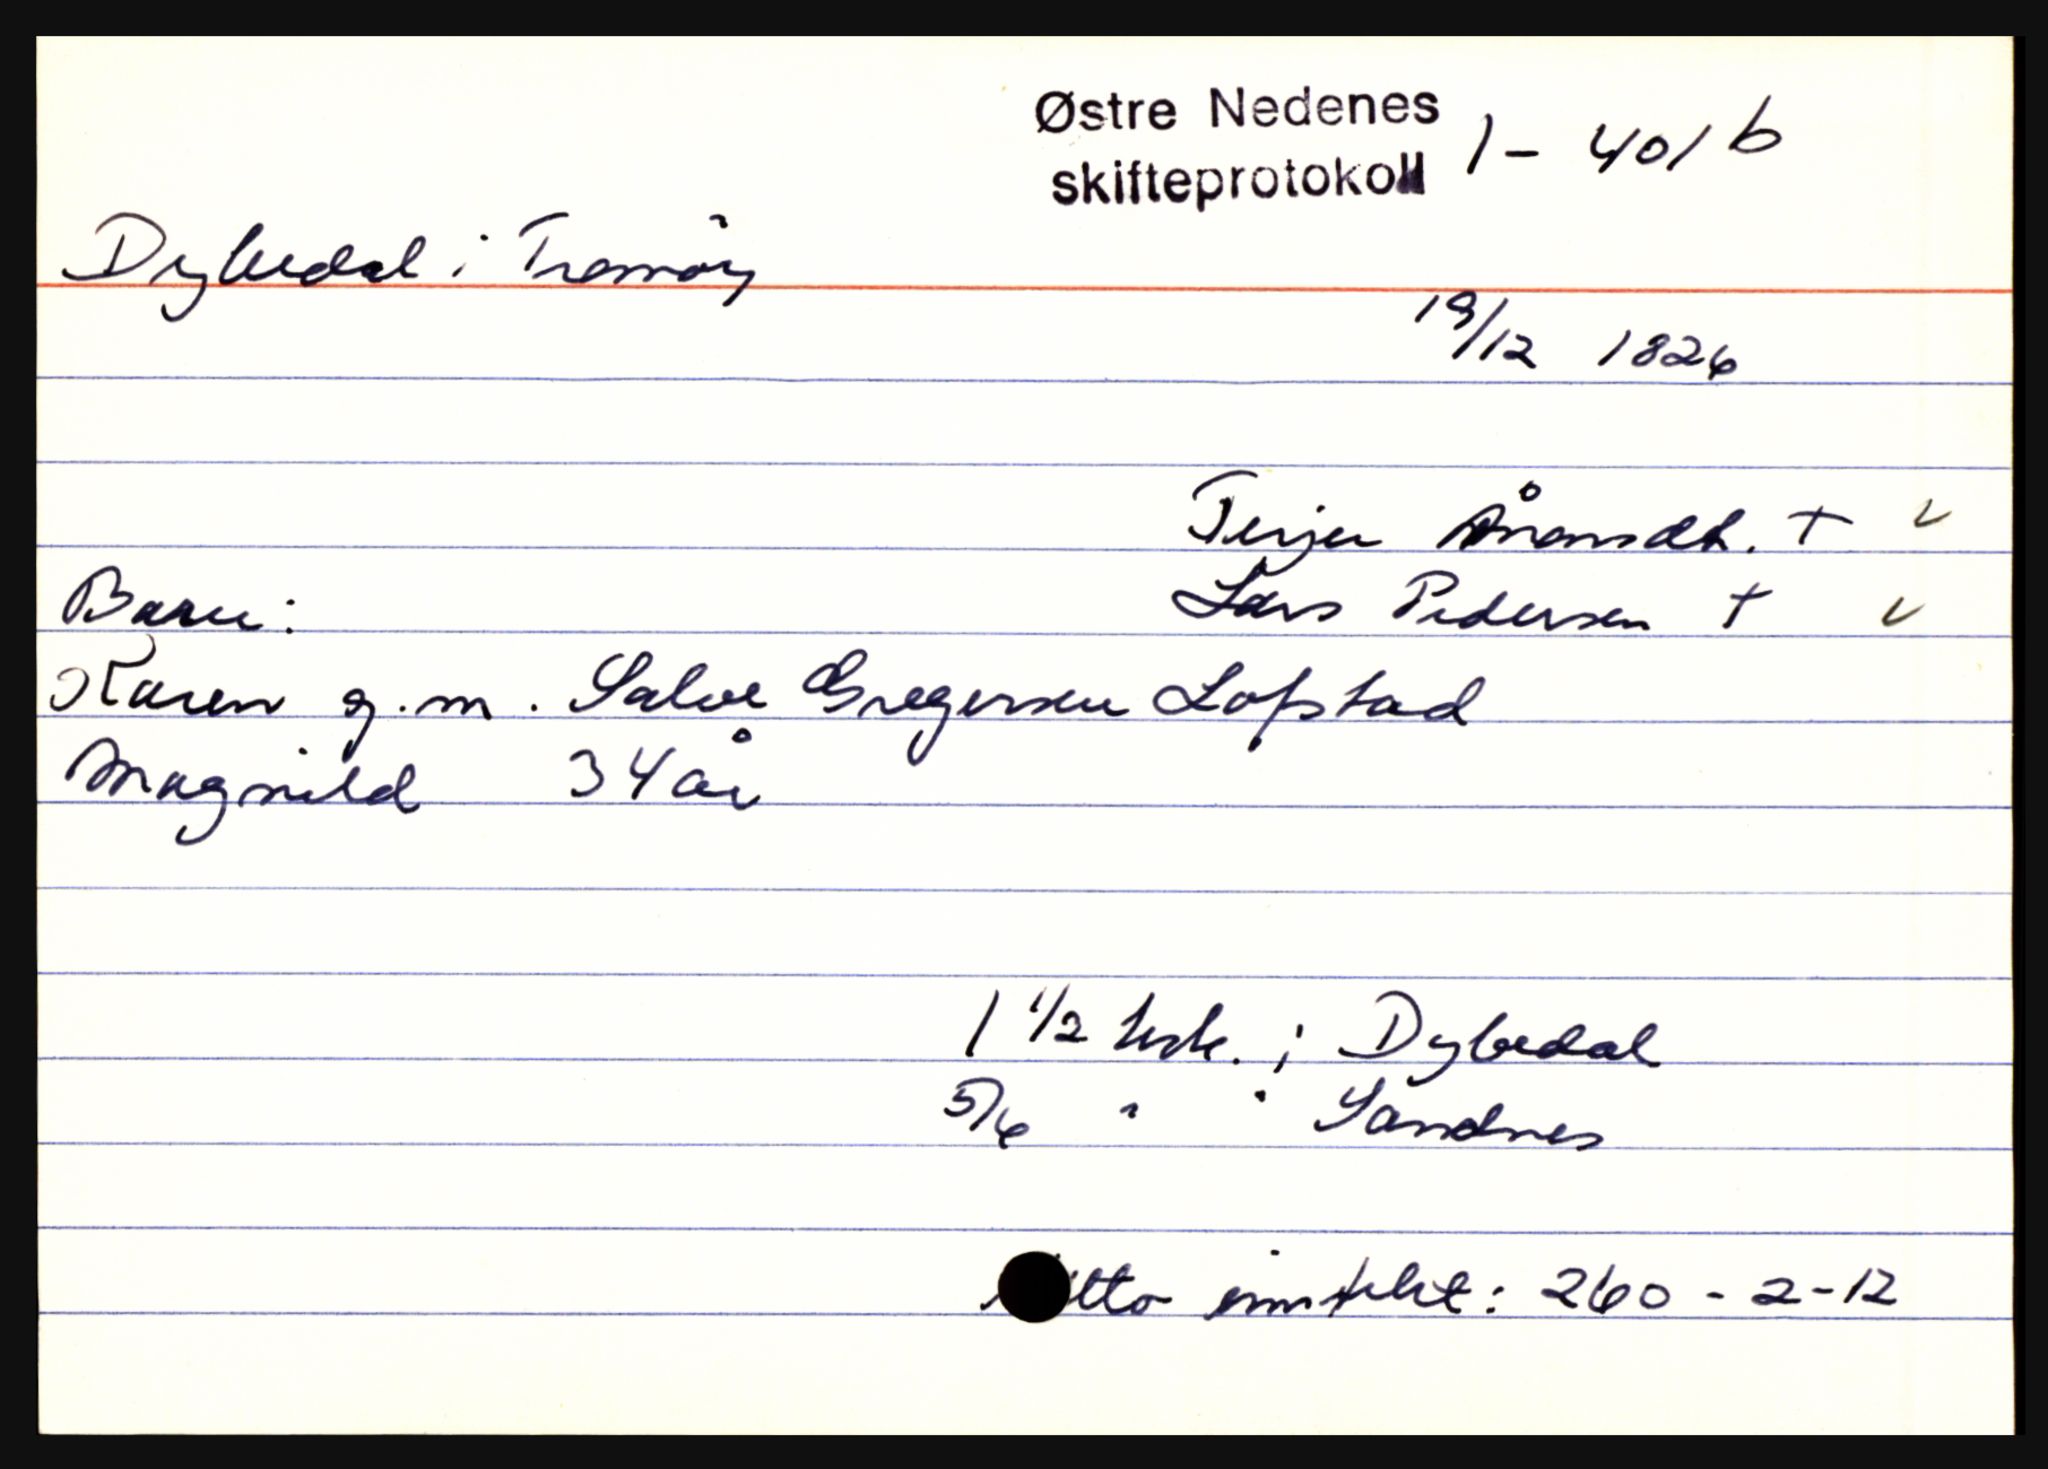 Østre Nedenes
skifteprotokoll 1 - 401 b
Dybedal i Tromøy
19/12 1826
Terjer Ånonsdt. † v
Barn: Lars Pedersen † v
Karen g.m. Salve Gregersen Lofstad
Magnild 34 år
1 1/2 hsk. i Dybedal
5/6 " " Sandnes
tto inntekt: 260 - 2 - 12